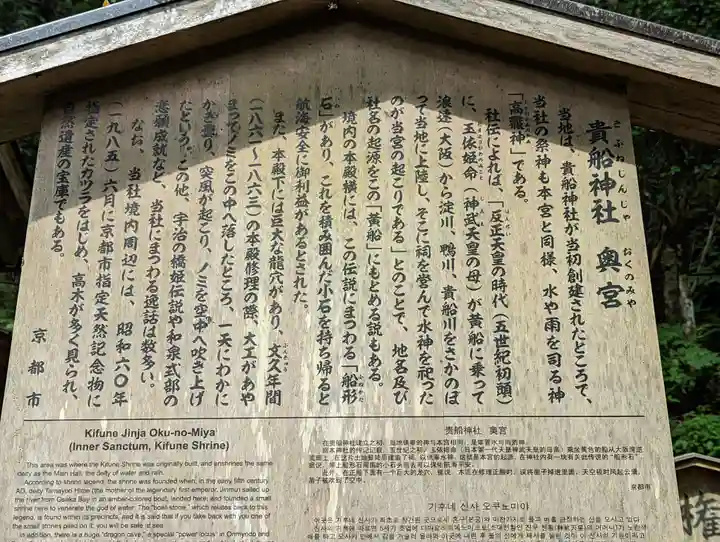 貴船神社 奥宮
きふねじんじゃ おくのみや
当地は、貴船神社が当初創建されたところで、
当社の祭神も本宮と同様、水や雨を司る神
「高龗神」である。
社伝によれば、「反正天皇の時代(五世紀初頭)
に、玉依姫命(神武天皇の母)が黄船に乗って
浪速(大阪)から淀川、鴨川、貴船川をさかのぼ
って当地に上陸し、そこに祠を営んで水神を祀った
のが当宮の起こりである」とのことで、地名及び
社名の起源をこの「黄船」にもとめる説もある。
境内の本殿横には、この伝説にまつわる「船形
石」があり、これを積み囲んだ小石を持ち帰ると
航海安全に御利益があるとされた。
また、本殿下には巨大な龍穴があり、文久年間
(一八六一〜一八六三)の本殿修理の際、大工があや
まってノミをこの中へ落したところ、一天にわかに
かき曇り、突風が起こり、ノミを空中へ吹き上げ
たという。この他、宇治の橋姫伝説や和泉式部の
恋願成就など、当社にまつわる逸話は数多い。
なお、当社境内周辺には、昭和六〇年
(一九八五)六月に京都市指定天然記念物に
指定されたカツラをはじめ、高木が多く見られ、
自然遺産の宝庫でもある。
京都市
Kifune Jinja Oku-no-Miya
(Inner Sanctum, Kifune Shrine)
This area was where the Kifune Shrine was originally built, and enshrines the same
deity as the Main Hall, the deity of water and rain.
According to shrine legend, the shrine was founded when, in the early fifth century
AD, deity Tamayori Hime (the mother of the legendary first emperor, Jinmu) sailed up
the river from Osaka Bay in an amber-colored boat, landed here, and founded a small
shrine here to venerate the god of water. The "boat stone", which relates back to this
legend, is found within its precincts, and it is said that if you take back with you one of
the small stones piled on it, you will be safe at sea.
In addition, there is a huge "dragon cave," a special "power focus" in Onmyodo and
貴船神社 奥宮
京都市
기후네 신사 오쿠노미야
権